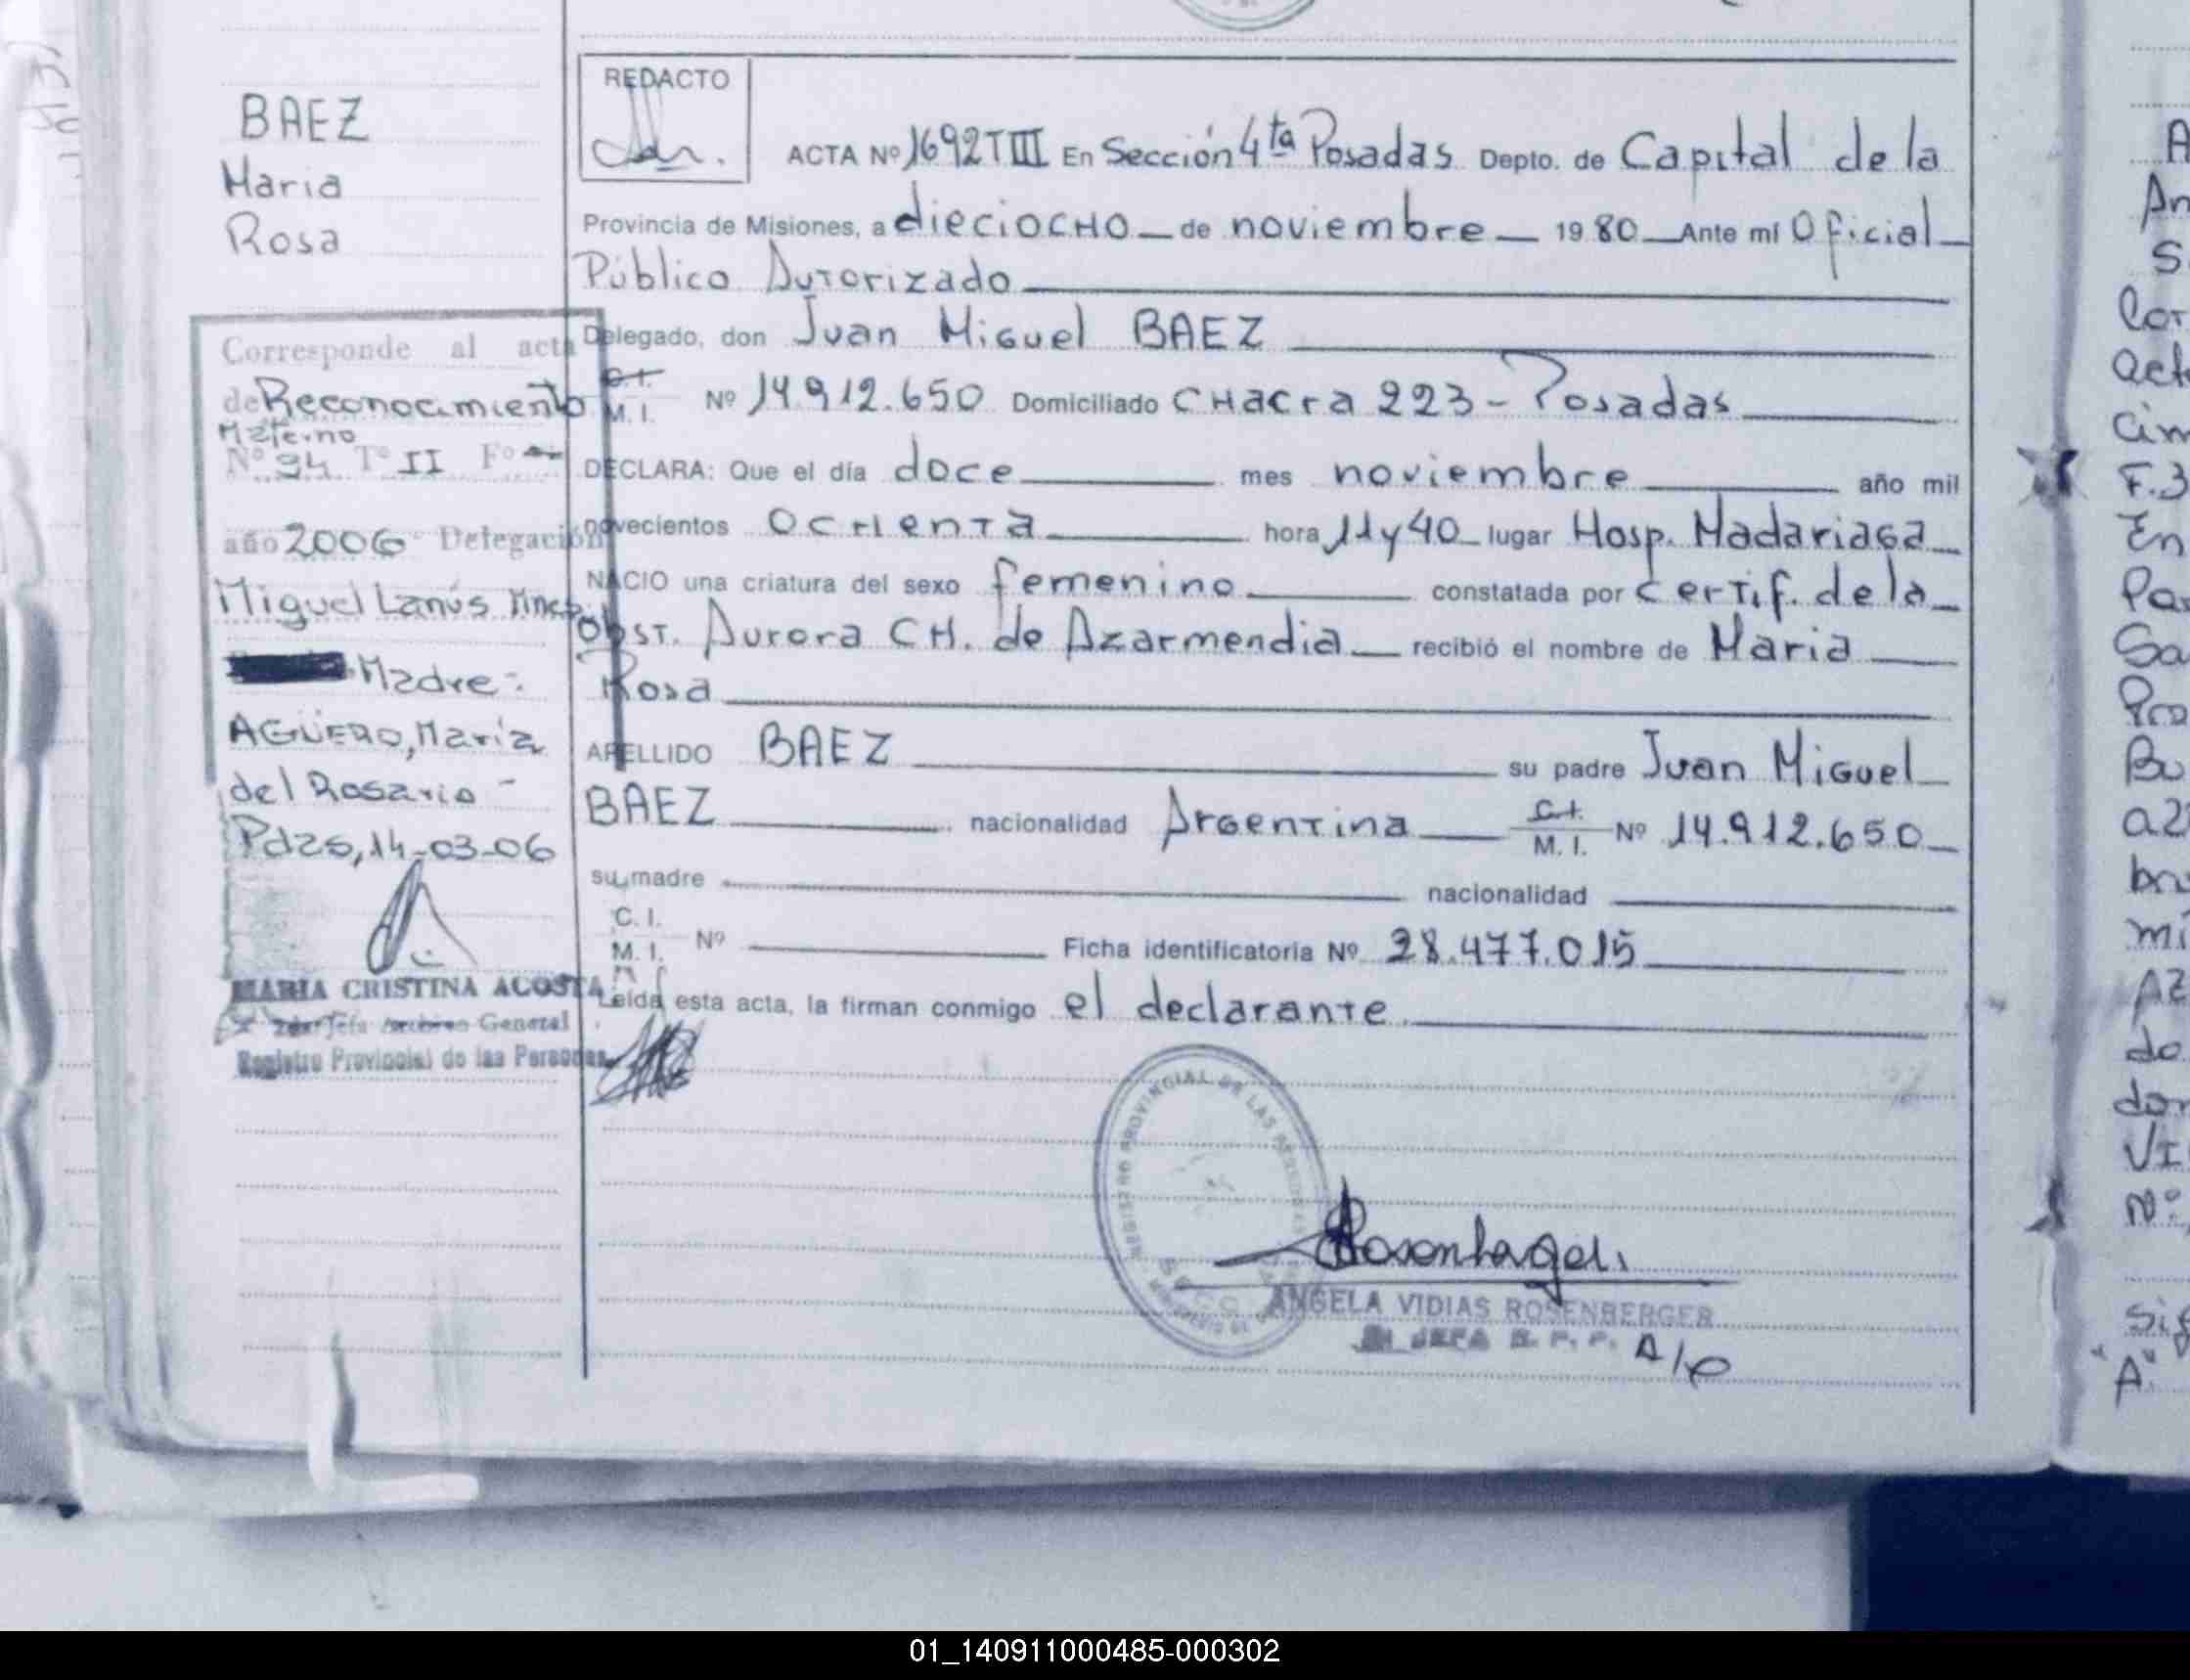 BAEZ
Maria
Rosa
REDACTO
ACTA Nº 1692 T III En Sección 4ta Posadas Depto. de Capital de la
Provincia de Misiones, a dieciocho de noviembre 1980 Ante mí Oficial
Público Autorizado
Delegado, don Juan Miguel BAEZ
C.I.
M. I. Nº 14.912.650 Domiciliado Chacra 223 - Posadas
DECLARA: Que el día doce mes noviembre año mil
novecientos ochenta hora 11 y 40 lugar Hosp. Madariaga
NACIO una criatura del sexo femenino constatada por certif. de la
Obst. Aurora CH. de Azarmendia recibió el nombre de Maria
Rosa
APELLIDO BAEZ su padre Juan Miguel
BAEZ nacionalidad Argentina C.I. M. I. Nº 14.912.650
su madre nacionalidad
C. I.
M. I. Nº Ficha identificatoria Nº 28.477.015
Leída esta acta, la firman conmigo el declarante
Corresponde al acta
de Reconocimiento
Materno
Nº 94 Tº II Fº
año 2006 Delegación
Miguel Lanús
Madre:
AGÜERO, María
del Rosario -
Pdas, 14-03-06
MARIA CRISTINA ACOSTA
Jefa Archivo General
Registro Provincial de las Personas
REGISTRO PROVINCIAL DE LAS PERSONAS
ANGELA VIDIAS ROSENBERGER
JEFA R. P. P. A/C
01_140911000485-000302